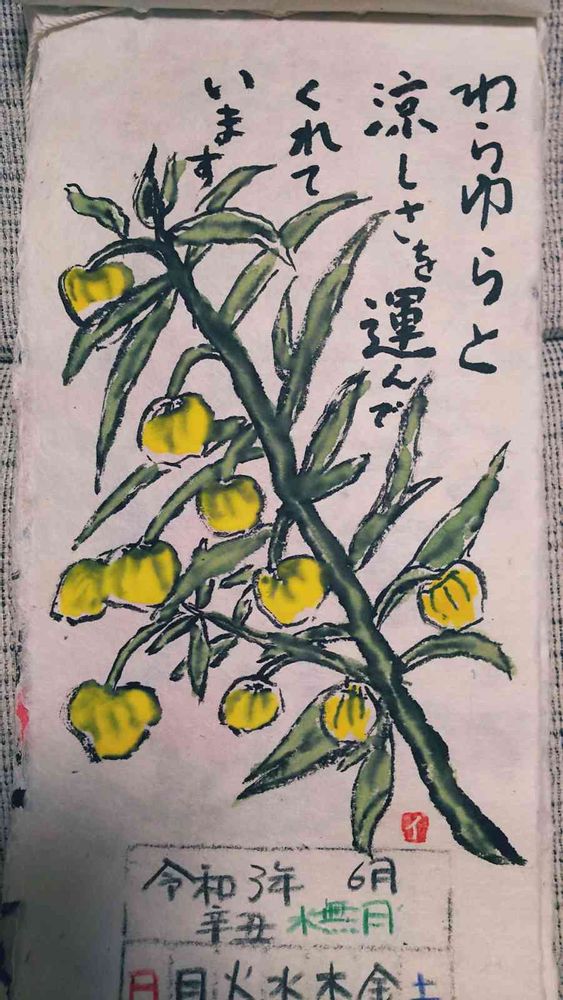 ゆらゆらと
涼しさを運んで
くれて
います
イ
令和3年 6月
辛丑 水無月
日月火水木金土